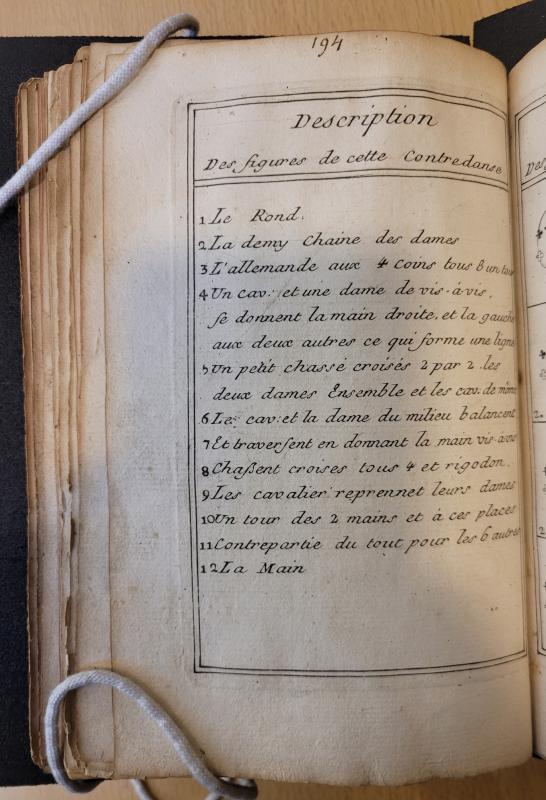 194
Description
Des figures de cette Contredanse
1 Le Rond.
2 La demy Chaine des dames
3 L'allemande aux 4 coins tous 8 un tour
4 Un cav: et une dame de vis-à-vis,
se donnent la main droite, et la gauche
aux deux autres ce qui forme une ligne
5 Un petit chassé croisés 2 par 2 les
deux dames Ensemble et les cav: de même
6 Le cav: et la dame du milieu balancent
7 Et traversent en donnant la main vis-à-vis
8 Chaßent croises tous 4 et rigodon.
9 Les cavalier reprennet leurs dames
10 Un tour des 2 mains et à ces places
11 Contrepartie du tout pour les 6 autres
12 La Main
Des
2.
2